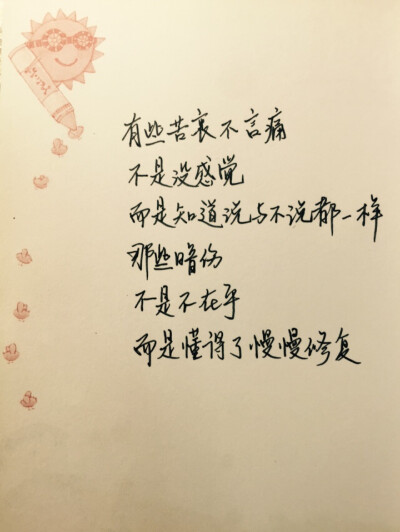 有些苦衷不言痛
不是没感觉
而是知道说与不说都一样
那些暗伤
不是不在乎
而是懂得了慢慢修复